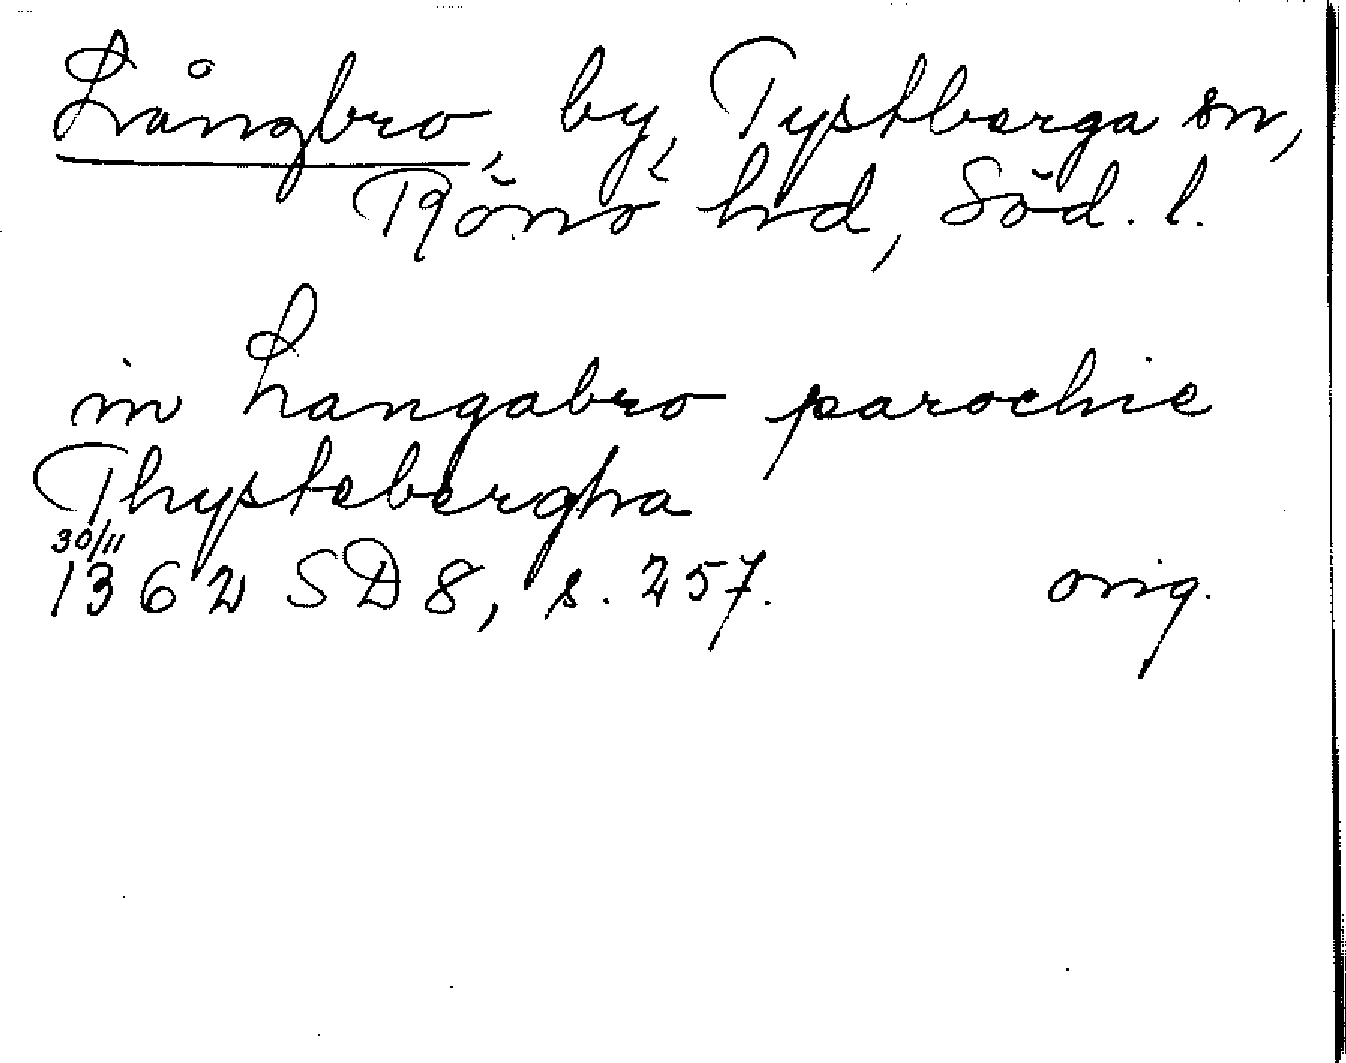 Långbro, by, Tystberga sn,
Rönö hd, Söd. l.
in Langabro parochie
Thystebergha
30/11
1362 SD 8, s. 257. orig.